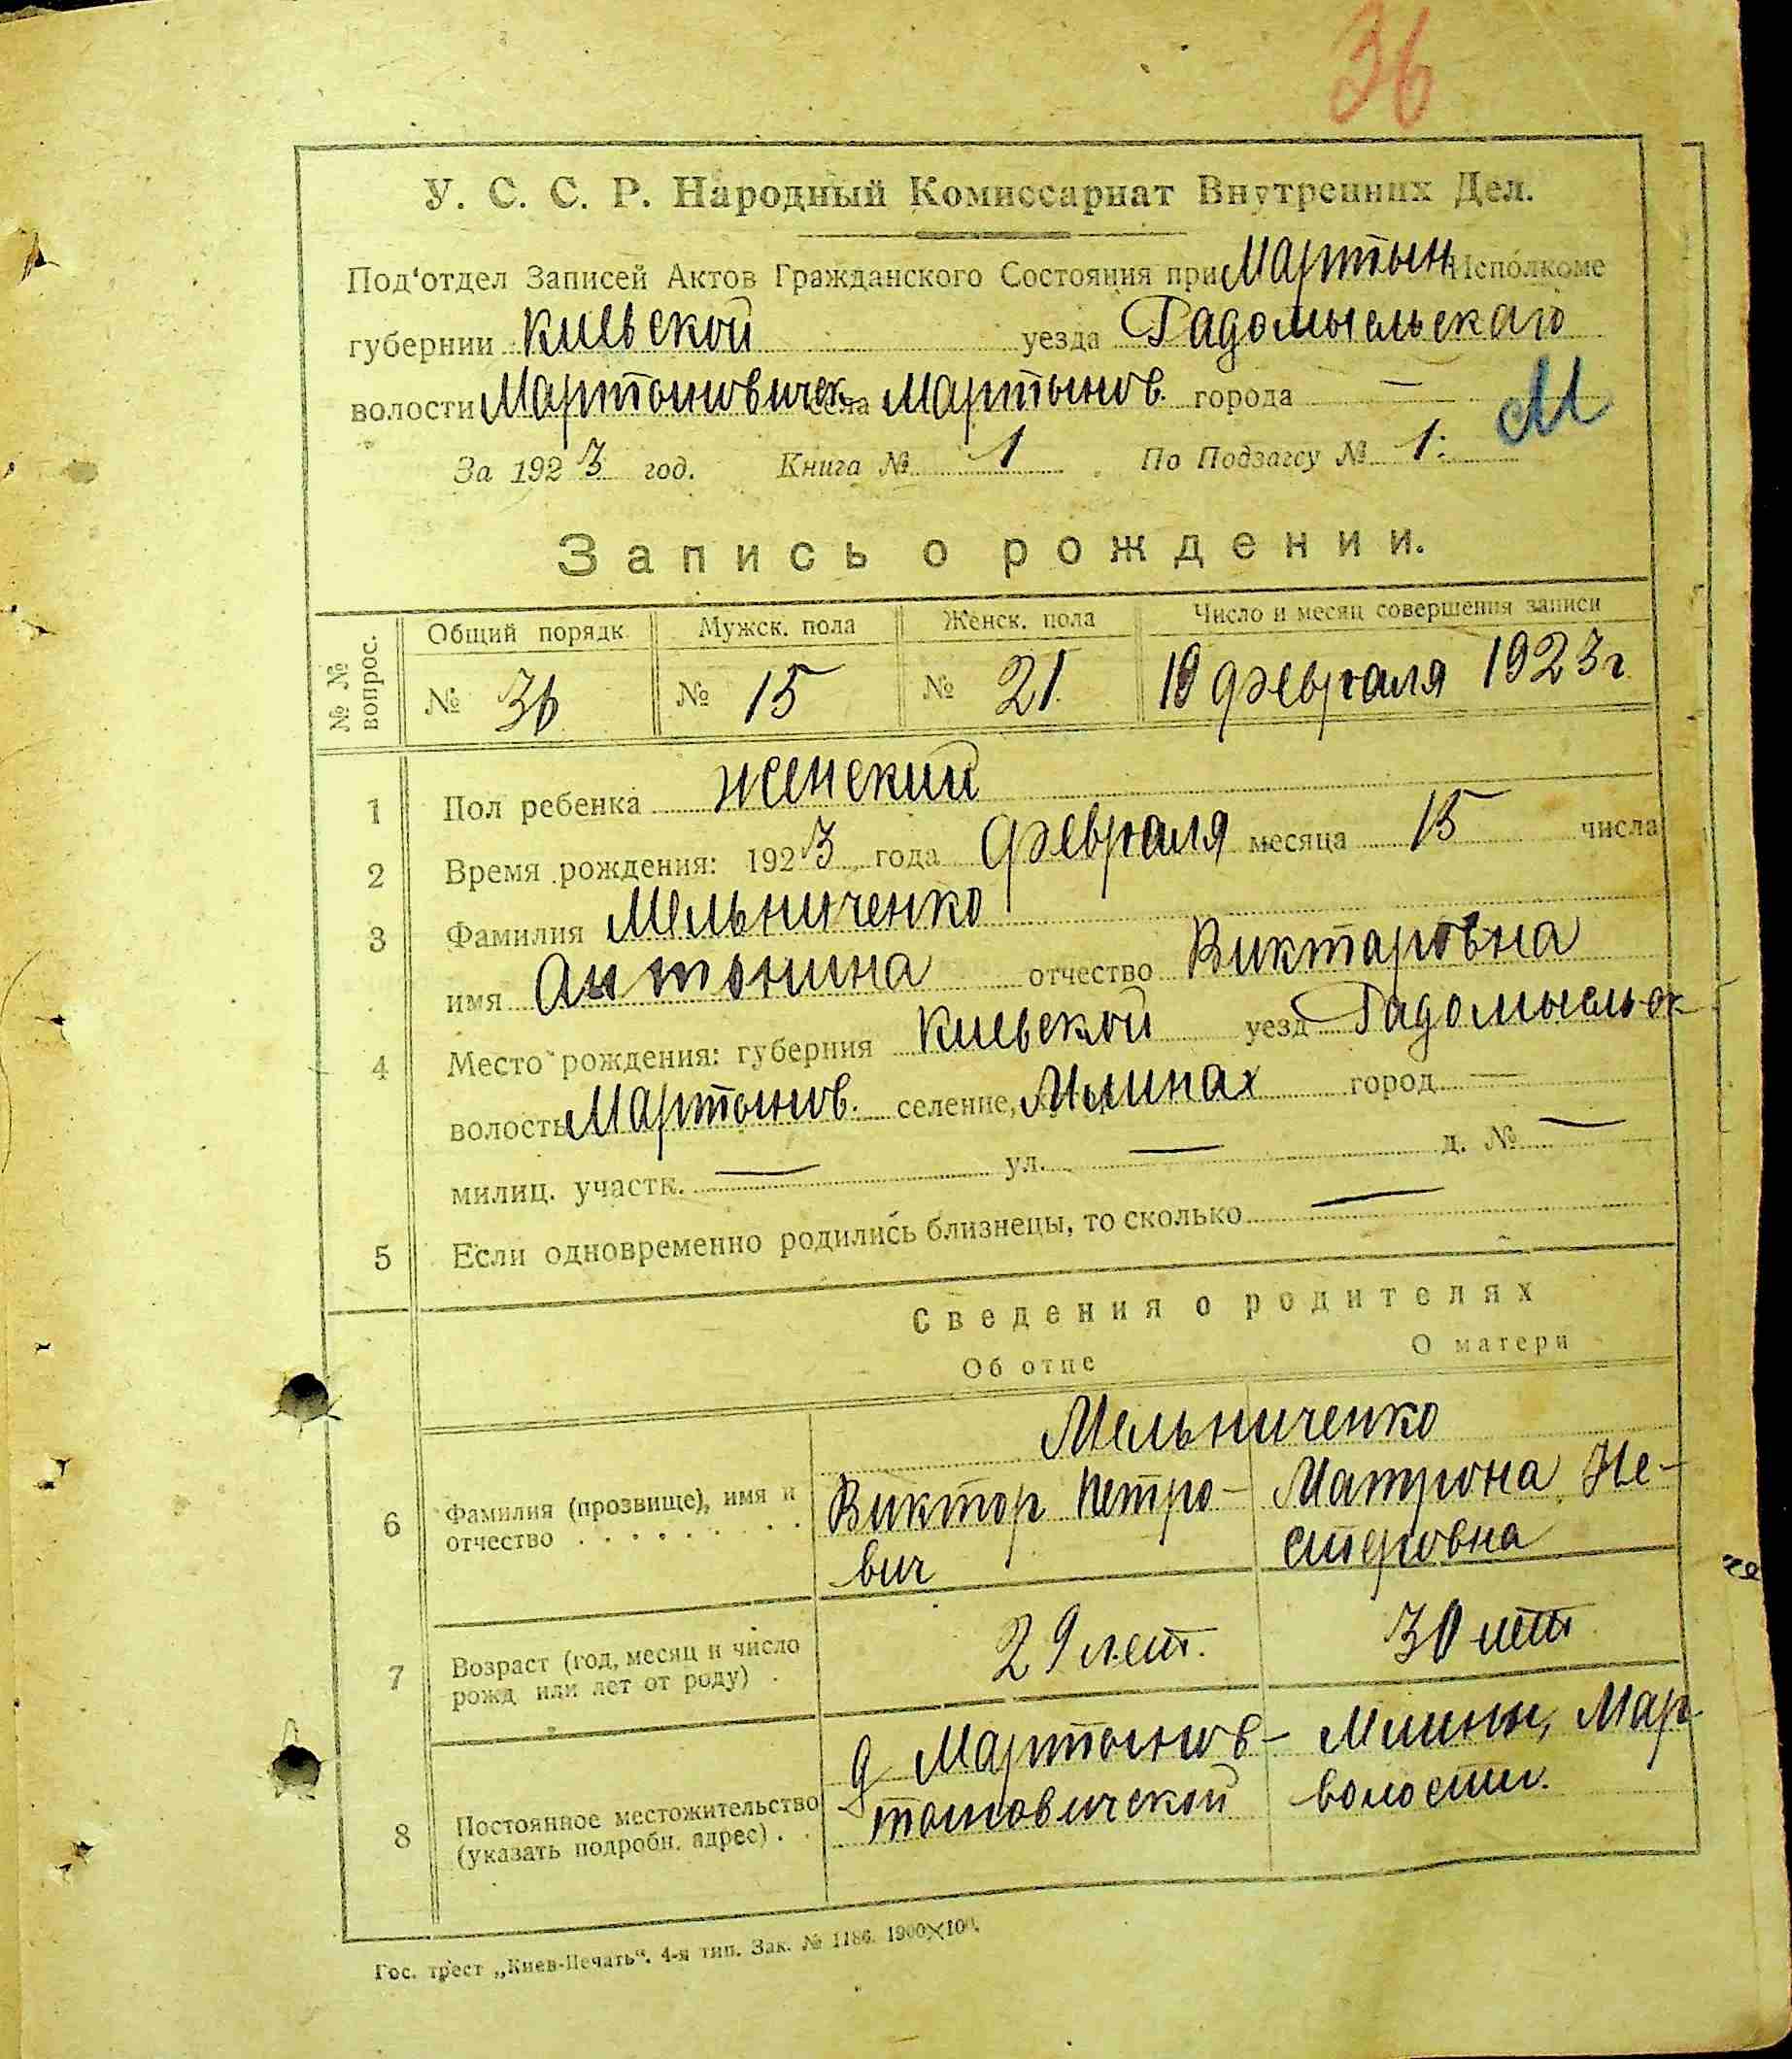 36
У. С. С. Р. Народный Комиссариат Внутренних Дел.
Под‘отдел Записей Актов Гражданского Состояния при Мартын Исполкоме
губернии Киевской уезда Радомысльскаго
волости Мартыновическ села Мартынов. города —
М
За 1923 год. Книга № 1 По Подзагсу № 1:
Запись о рождении.
№ № вопрос. Общий порядк Мужск. пола Женск. пола Число и месяц совершения записи
№ 36 № 15 № 21 19 февраля 1923 г
1 Пол ребенка женский
2 Время рождения: 1923 года февраля месяца 15 числа
3 Фамилия Мельниченко
имя Антонина отчество Викторовна
4 Место рождения: губерния Киевской уезд Радомысльск
волость Мартынов. селение, Млинах город —
милиц. участк. — ул. — д. № —
5 Если одновременно родились близнецы, то сколько —
Сведения о родителях
Об отце О матери
Мельниченко
6 Фамилия (прозвище), имя и отчество Виктор Петро- Матрона Не-
вич стеровна
7 Возраст (год, месяц и число рожд или лет от роду) 29 лет. 30 лет
8 Постоянное местожительство (указать подробн. адрес) д Мартынов- Млины, Мар
тыновической волости.
Гос. трест „Киев-Печать“. 4-я тип. Зак. № 1186. 1900×100.